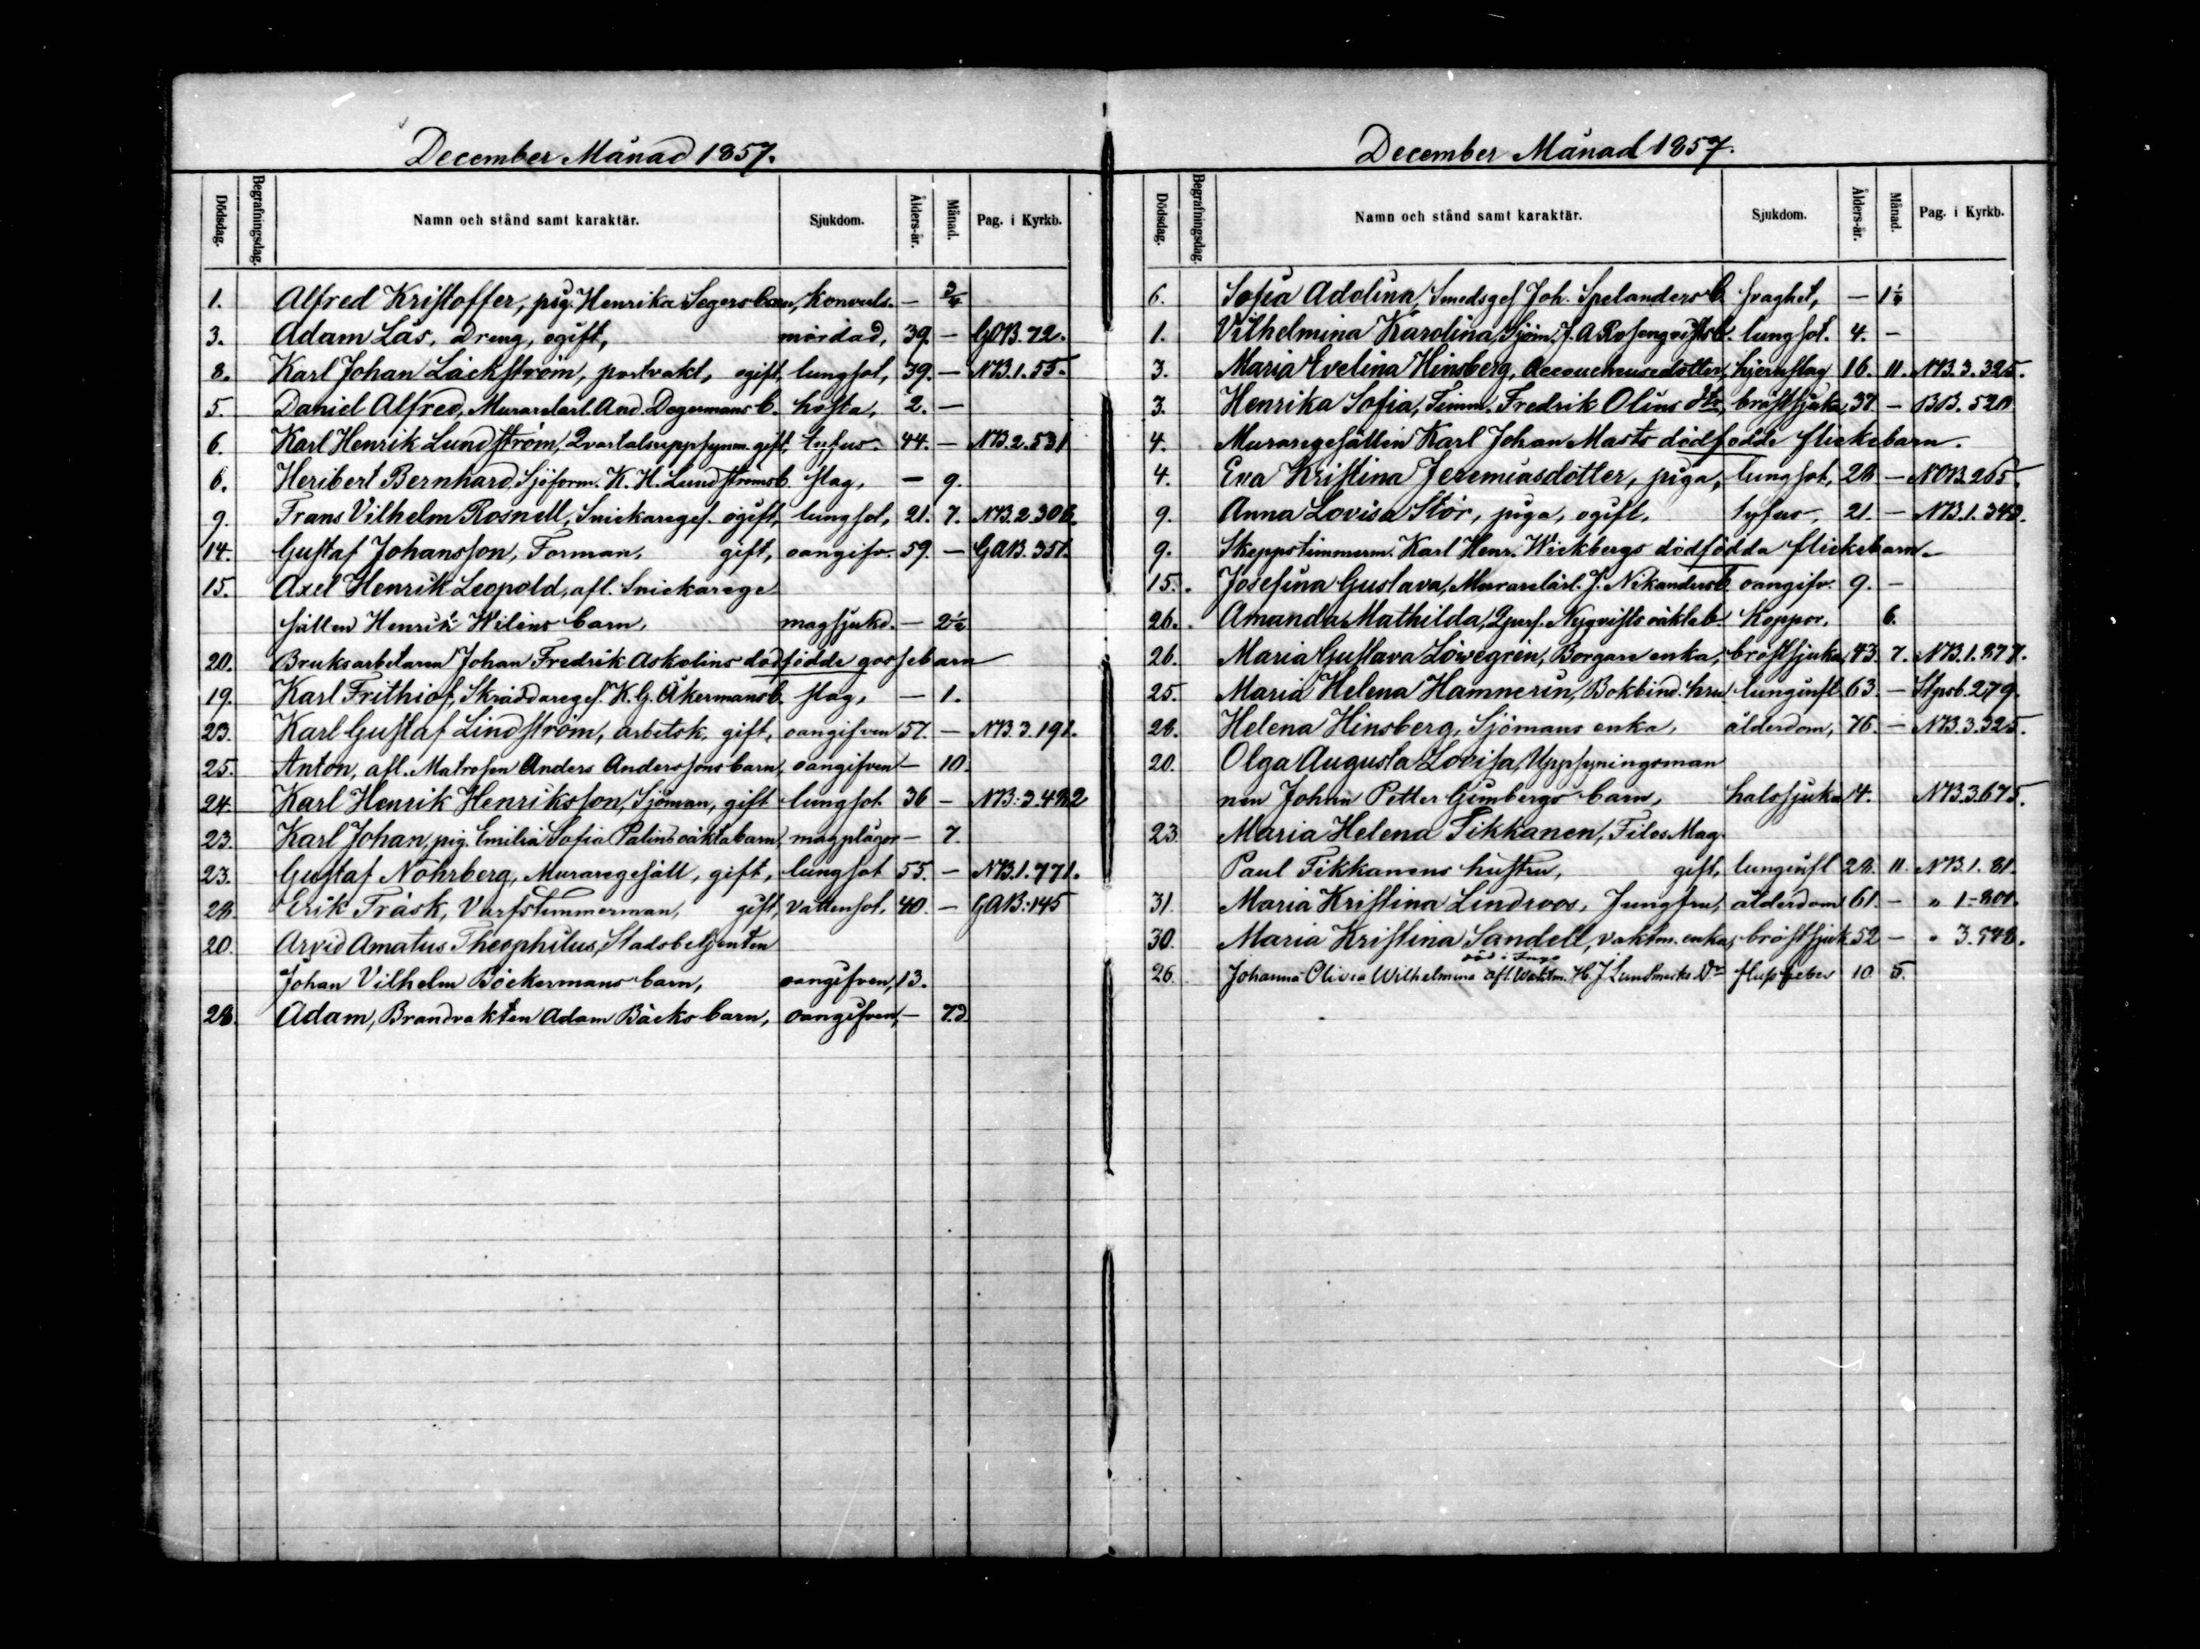 December Månad 1857.
Dödsdag. Begrafningsdag. Namn och stånd samt karaktär. Sjukdom. Ålders-år. Månad. Pag. i Kyrkb.
1. Alfred Kristoffer, pig. Henrika Segers barn, konvuls. — 3/4
3. Adam Lås, Dreng, ogift, mördad, 39. — GOB. 72.
8. Karl Johan Läckström, portvakt, ogift, lungsot, 39. — NB. 1. 55.
5. Daniel Alfred, Murarelärl. And. Degermans b. hosta, 2. —
6. Karl Henrik Lundström, Qvartalsuppsynm. gift, tyfus. 44. — NB. 2. 531
6. Heribert Bernhard, Sjöform. K. H. Lundströms b. slag, — 9.
9. Frans Vilhelm Rosnell, Snickareges. ogift, lungsot, 21. 7. NB. 2. 306.
14. Gustaf Johansson, Forman, gift, oangifv. 59. — GAB. 351.
15. Axel Henrik Leopold, afl. Snickarege
sällen Henrik Wilens barn, magsjukd. — 2 1/2
20. Bruksarbetaren Johan Fredrik Askolins dödfödde gossebarn
19. Karl Frithiof, Skräddareges. K. G. Åkermans b. slag, — 1.
23. Karl Gustaf Lindström, arbetsk. gift, oangifven 57. — NB. 3. 191.
25. Anton, afl. Matrosen Anders Anderssons barn, oangifven — 10.
24. Karl Henrik Henriksson, Sjöman, gift lungsot 36 — NB: 3. 482
23. Karl Johan, pig. Emilia Sofia Palins oäkta barn, magplågor — 7.
23. Gustaf Nohrberg, Muraregesäll, gift, lungsot 55. — NB. 1. 771.
28. Erik Träsk, Varfstimmerman, gift, vattensot, 40. — GAB: 145
20. Arvid Amatus Theophilus, Stadsbetjenten
Johan Vilhelm Böckermans barn, oangifven, 13.
28. Adam, Brandvakten Adam Bäcks barn, oangifven, — 7.d.
December Månad 1857.
Dödsdag. Begrafningsdag. Namn och stånd samt karaktär. Sjukdom. Ålders-år. Månad. Pag. i Kyrkb.
6. Sofia Adolina, Smedsges Joh. Spelanders b. svaghet, —
1. Vilhelmina Karolina, Sjöm. J. A. Rosenqvists b. lungsot. 4. —
3. Maria Evelina Hinsberg, Accoucheusedotter, hjernslag 16. 11. NB. 3. 325.
3. Henrika Sofia, Timm. Fredrik Olins bröstsjuka 37 — BB. 520
4. Muraregesällen Karl Johan Masts dödfödde flickebarn.
4. Eva Kristina Jeremiasdotter, piga, lungsot, 28 — NOB. 265.
9. Anna Lovisa Stör, piga, ogift, tyfus, 21. — NB. 1. 348.
9. Skeppstimmerm. Karl Henr. Wickbergs dödfödda flickebarn.
15. Josefina Gustava, Murarelärl. J. Nikanders b. oangifv. 9. —
26. Amanda Mathilda, Nyqvists oäkta b. Koppor. 6.
26. Maria Gustava Löwegren, Borgare enka, bröstsjuka, 43. 7. NB. 1. 877.
25. Maria Helena Hamnerin, Bokbind. hru lunginfl. 63. — Stpsb. 279.
28. Helena Hinsberg, Sjömans enka, ålderdom, 76. — NB. 3. 325.
20. Olga Augusta Lovisa, Uppsyningsman
nen Johan Petter Gimbergs barn, halssjuka 4. NB. 3. 675.
23. Maria Helena Tikkanen, Filos. Mag.
Paul Tikkanens hustru, gift, lunginfl 28. 11. NB. 1. 81.
31. Maria Kristina Lindroos, Jungfru, ålderdom 61. — " 1-801.
30. Maria Kristina Sandell, vaktm. enka, bröstsjuk 52 — " 3. 548.
död i Ingo
26. Johanna Olivia Wilhelmina afl. Waktm. H. J. Lundmarks Dr flussfeber 10. 5.